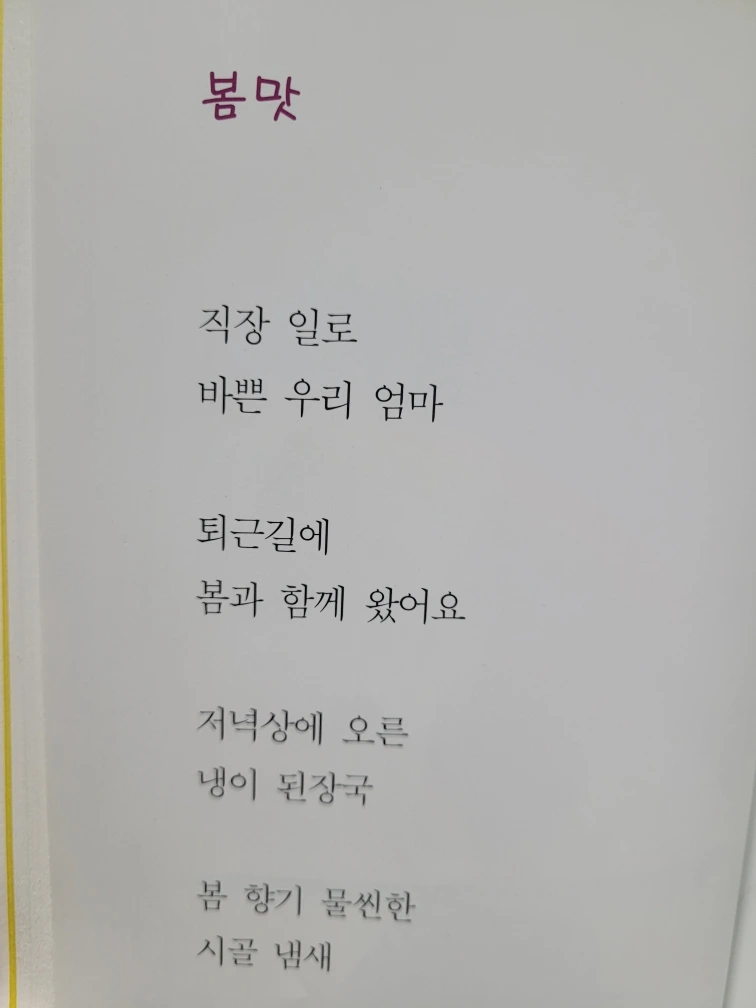 봄맛
직장 일로
바쁜 우리 엄마
퇴근길에
봄과 함께 왔어요
저녁상에 오른
냉이 된장국
봄 향기 물씬한
시골 냄새